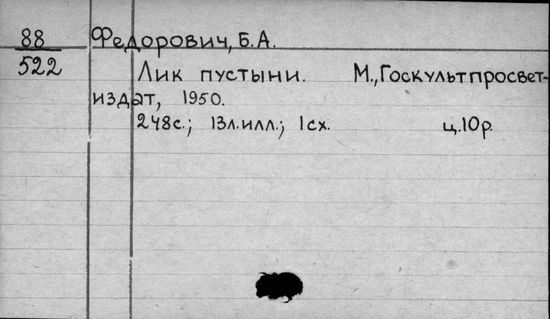 88 Федорович, Б.А.
522 Лик пустыни. М., Госкультпросвет-
издат, 1950.
248с.; 13л.илл.; 1сх. ц.10р.